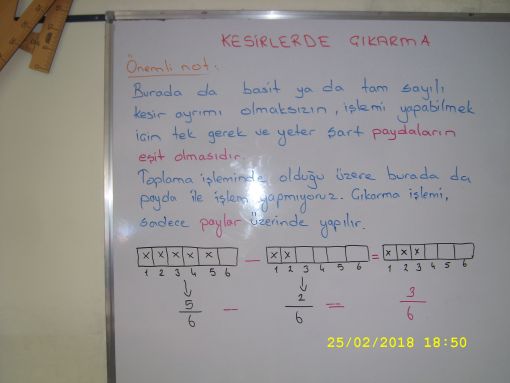 KESİRLERDE ÇIKARMA
Önemli not:
Burada da basit ya da tam sayılı
kesir ayrımı olmaksızın, işlemi yapabilmek
için tek gerek ve yeter şart paydaların
eşit olmasıdır.
Toplama işleminde olduğu üzere burada da
payda ile işlem yapmıyoruz. Çıkarma işlemi,
sadece paylar üzerinde yapılır.
x x x x x − x x = x x x
1 2 3 4 5 6 1 2 3 4 5 6 1 2 3 4 5 6
5/6 − 2/6 = 3/6
25/02/2018 18:50